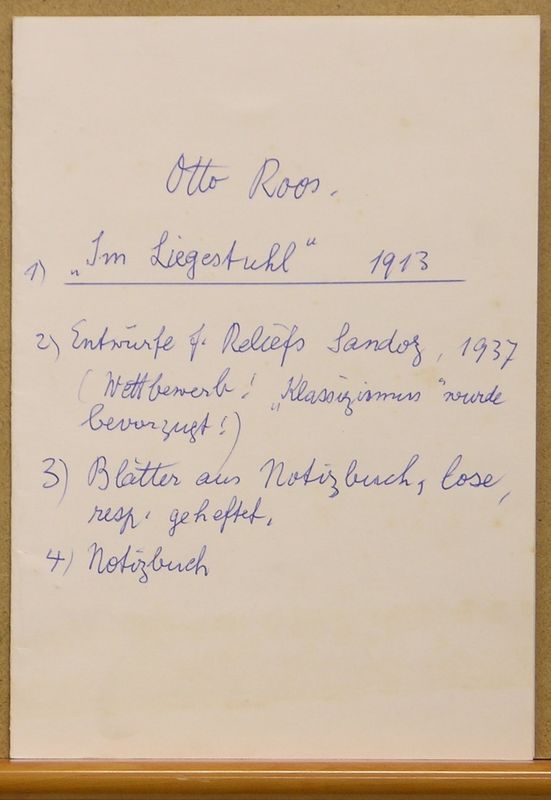 Otto Roos.
1) „Im Liegestuhl“ 1913
2) Entwürfe f. Reliefs Sandoz, 1937
(Wettbewerb! „Klassizismus“ wurde
bevorzugt!)
3) Blätter aus Notizbuch, lose,
resp. geheftet.
4) Notizbuch